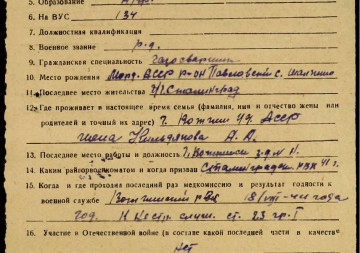 5. Образование
6. На ВУС 134
7. Должностная квалификация
8. Военное звание р-д.
9. Гражданская специальность газосварщик
10. Место рождения Морд. АССР р-он
11. Последнее место жительства г. Сталинград
12. Где проживает в настоящее время семья (фамилия, имя и отчество жены или
родителей и точный их адрес) г. Воткинск Уд. АССР
жена А. А.
13. Последнее место работы и должность г. Воткинск
14. Каким райгорвоенкоматом и когда призван Сталинградским РВК 41 г.
15. Когда и где проходил последний раз медкомиссию и результат годности к
военной службе Воткинский РВК 18/VIII-44 года
год. к ст. 23 гр. I
16. Участие в Отечественной войне (в составе какой последней части в качестве
нет